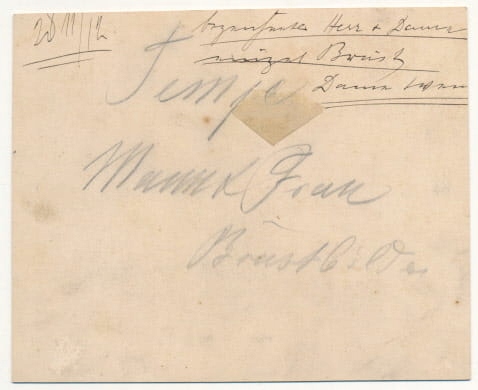 28/11/12
bezeichnete Herr + Dame
einzel Brust
Dame
Mann & Frau
Brustbilder